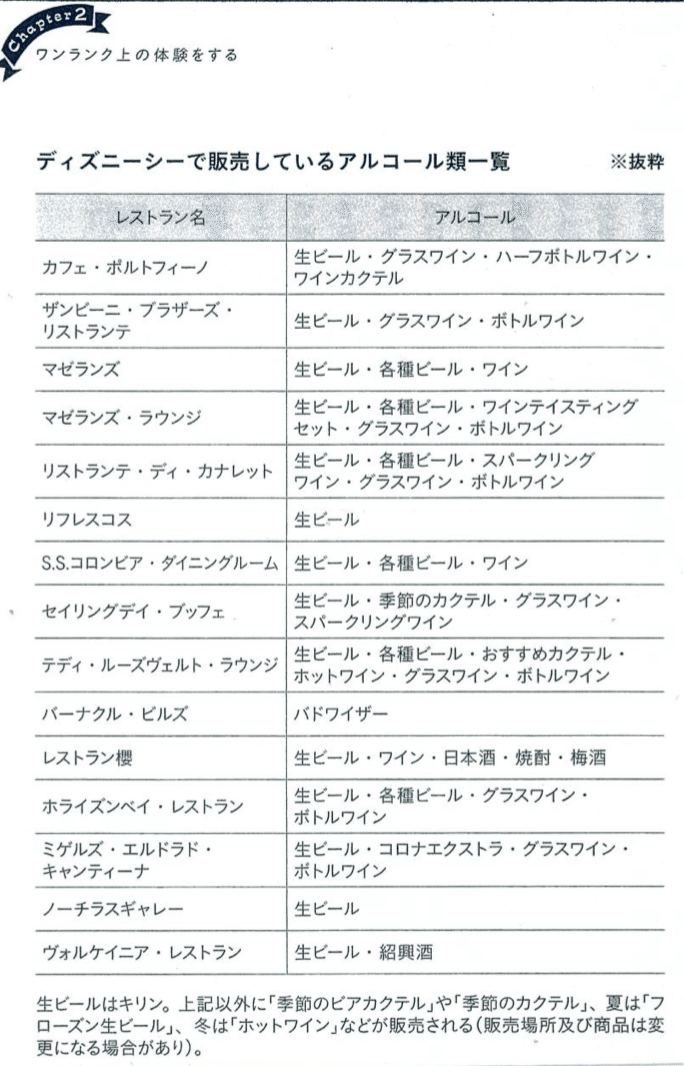 Chapter2
ワンランク上の体験をする
ディズニーシーで販売しているアルコール類一覧 ※抜粋
レストラン名 アルコール
カフェ・ポルトフィーノ 生ビール・グラスワイン・ハーフボトルワイン・
ワインカクテル
ザンビーニ・ブラザーズ・
リストランテ
生ビール・グラスワイン・ボトルワイン
マゼランズ 生ビール・各種ビール・ワイン
マゼランズ・ラウンジ 生ビール・各種ビール・ワインテイスティング
セット・グラスワイン・ボトルワイン
リストランテ・ディ・カナレット 生ビール・各種ビール・スパークリング
ワイン・グラスワイン・ボトルワイン
リフレスコス 生ビール
S.S.コロンビア・ダイニングルーム 生ビール・各種ビール・ワイン
セイリングデイ・ブッフェ 生ビール・季節のカクテル・グラスワイン・
スパークリングワイン
テディ・ルーズヴェルト・ラウンジ 生ビール・各種ビール・おすすめカクテル・
ホットワイン・グラスワイン・ボトルワイン
バーナクル・ビルズ バドワイザー
レストラン櫻 生ビール・ワイン・日本酒・焼酎・梅酒
ホライズンベイ・レストラン 生ビール・各種ビール・グラスワイン・
ボトルワイン
ミゲルズ・エルドラド・
キャンティーナ
生ビール・コロナエクストラ・グラスワイン・
ボトルワイン
ノーチラスギャレー 生ビール
ヴォルケイニア・レストラン 生ビール・紹興酒
生ビールはキリン。上記以外に「季節のビアカクテル」や「季節のカクテル」、夏は「フ
ローズン生ビール」、冬は「ホットワイン」などが販売される(販売場所及び商品は変
更になる場合があり)。